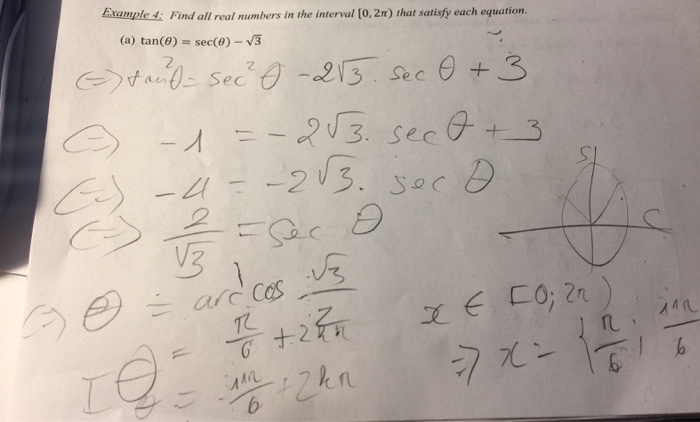 Example 4: Find all real numbers in the interval [0, 2π) that satisfy each equation.
(a) tan(θ) = sec(θ) − √3
⇔ tan²θ = sec²θ - 2√3. sec θ + 3
⇔ -1 = -2√3. sec θ + 3
⇔ -4 = -2√3. sec θ
⇔ 2/√3 = sec θ
S
C
⇔ θ = arc cos √3/2
θ = π/6 + 2kπ
θ = 11π/6 + 2kπ
x ∈ [0; 2π)
⇒ x = { π/6 ; 11π/6